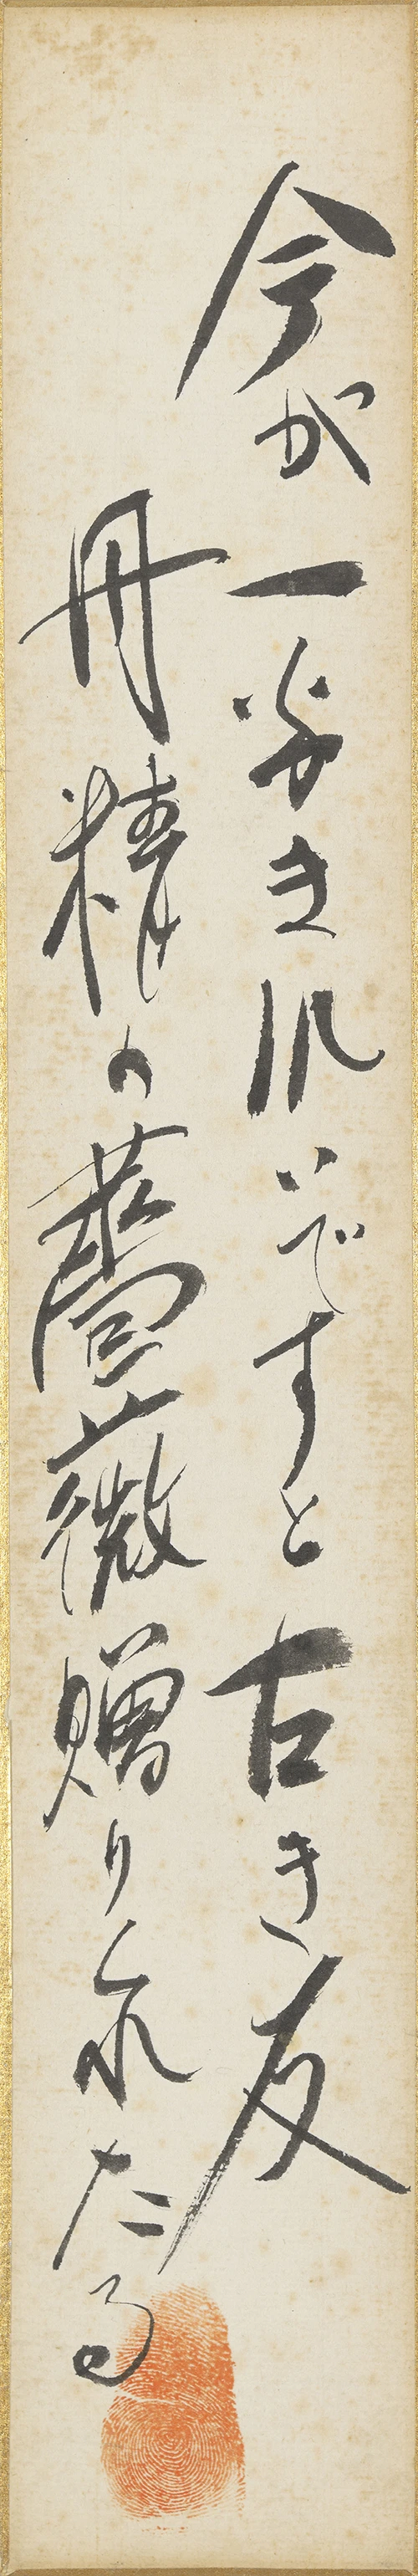 今が一番きれいですと古き友
丹精の薔薇贈りくれたる